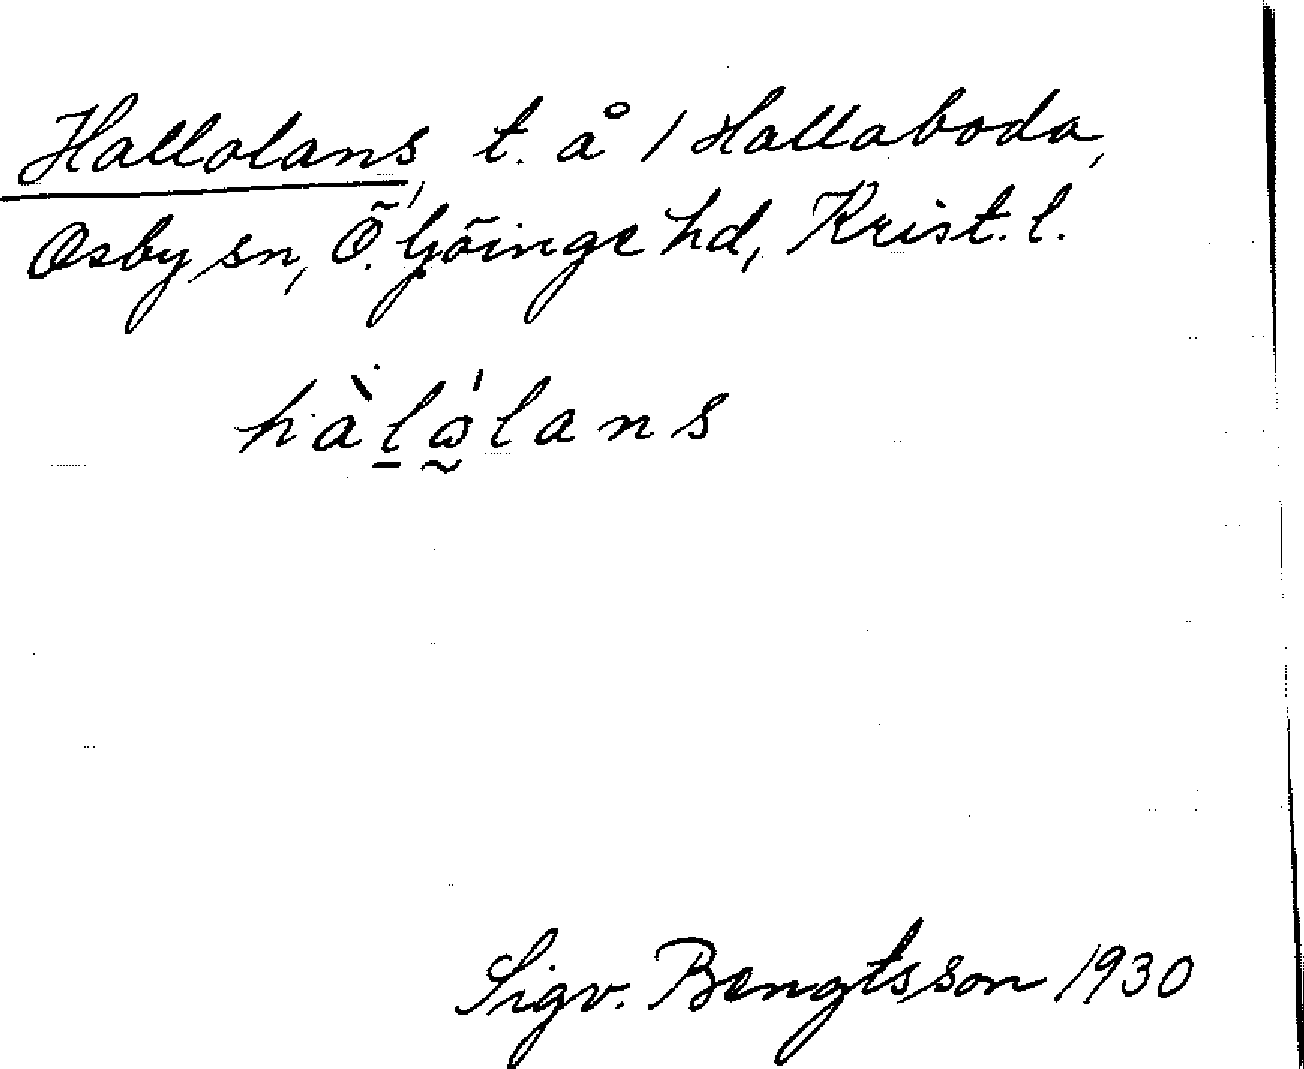 Hallolans, t. å 1 Hallaboda,
Osby sn, Ö. Göinge hd, Krist. l.
hàlώ̰lans
Sigv. Bengtsson 1930